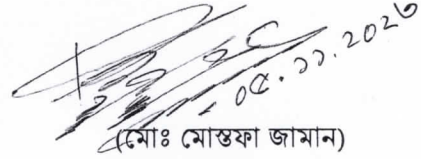 ০৫.১১.২০২৩
(মোঃ মোস্তফা জামান)